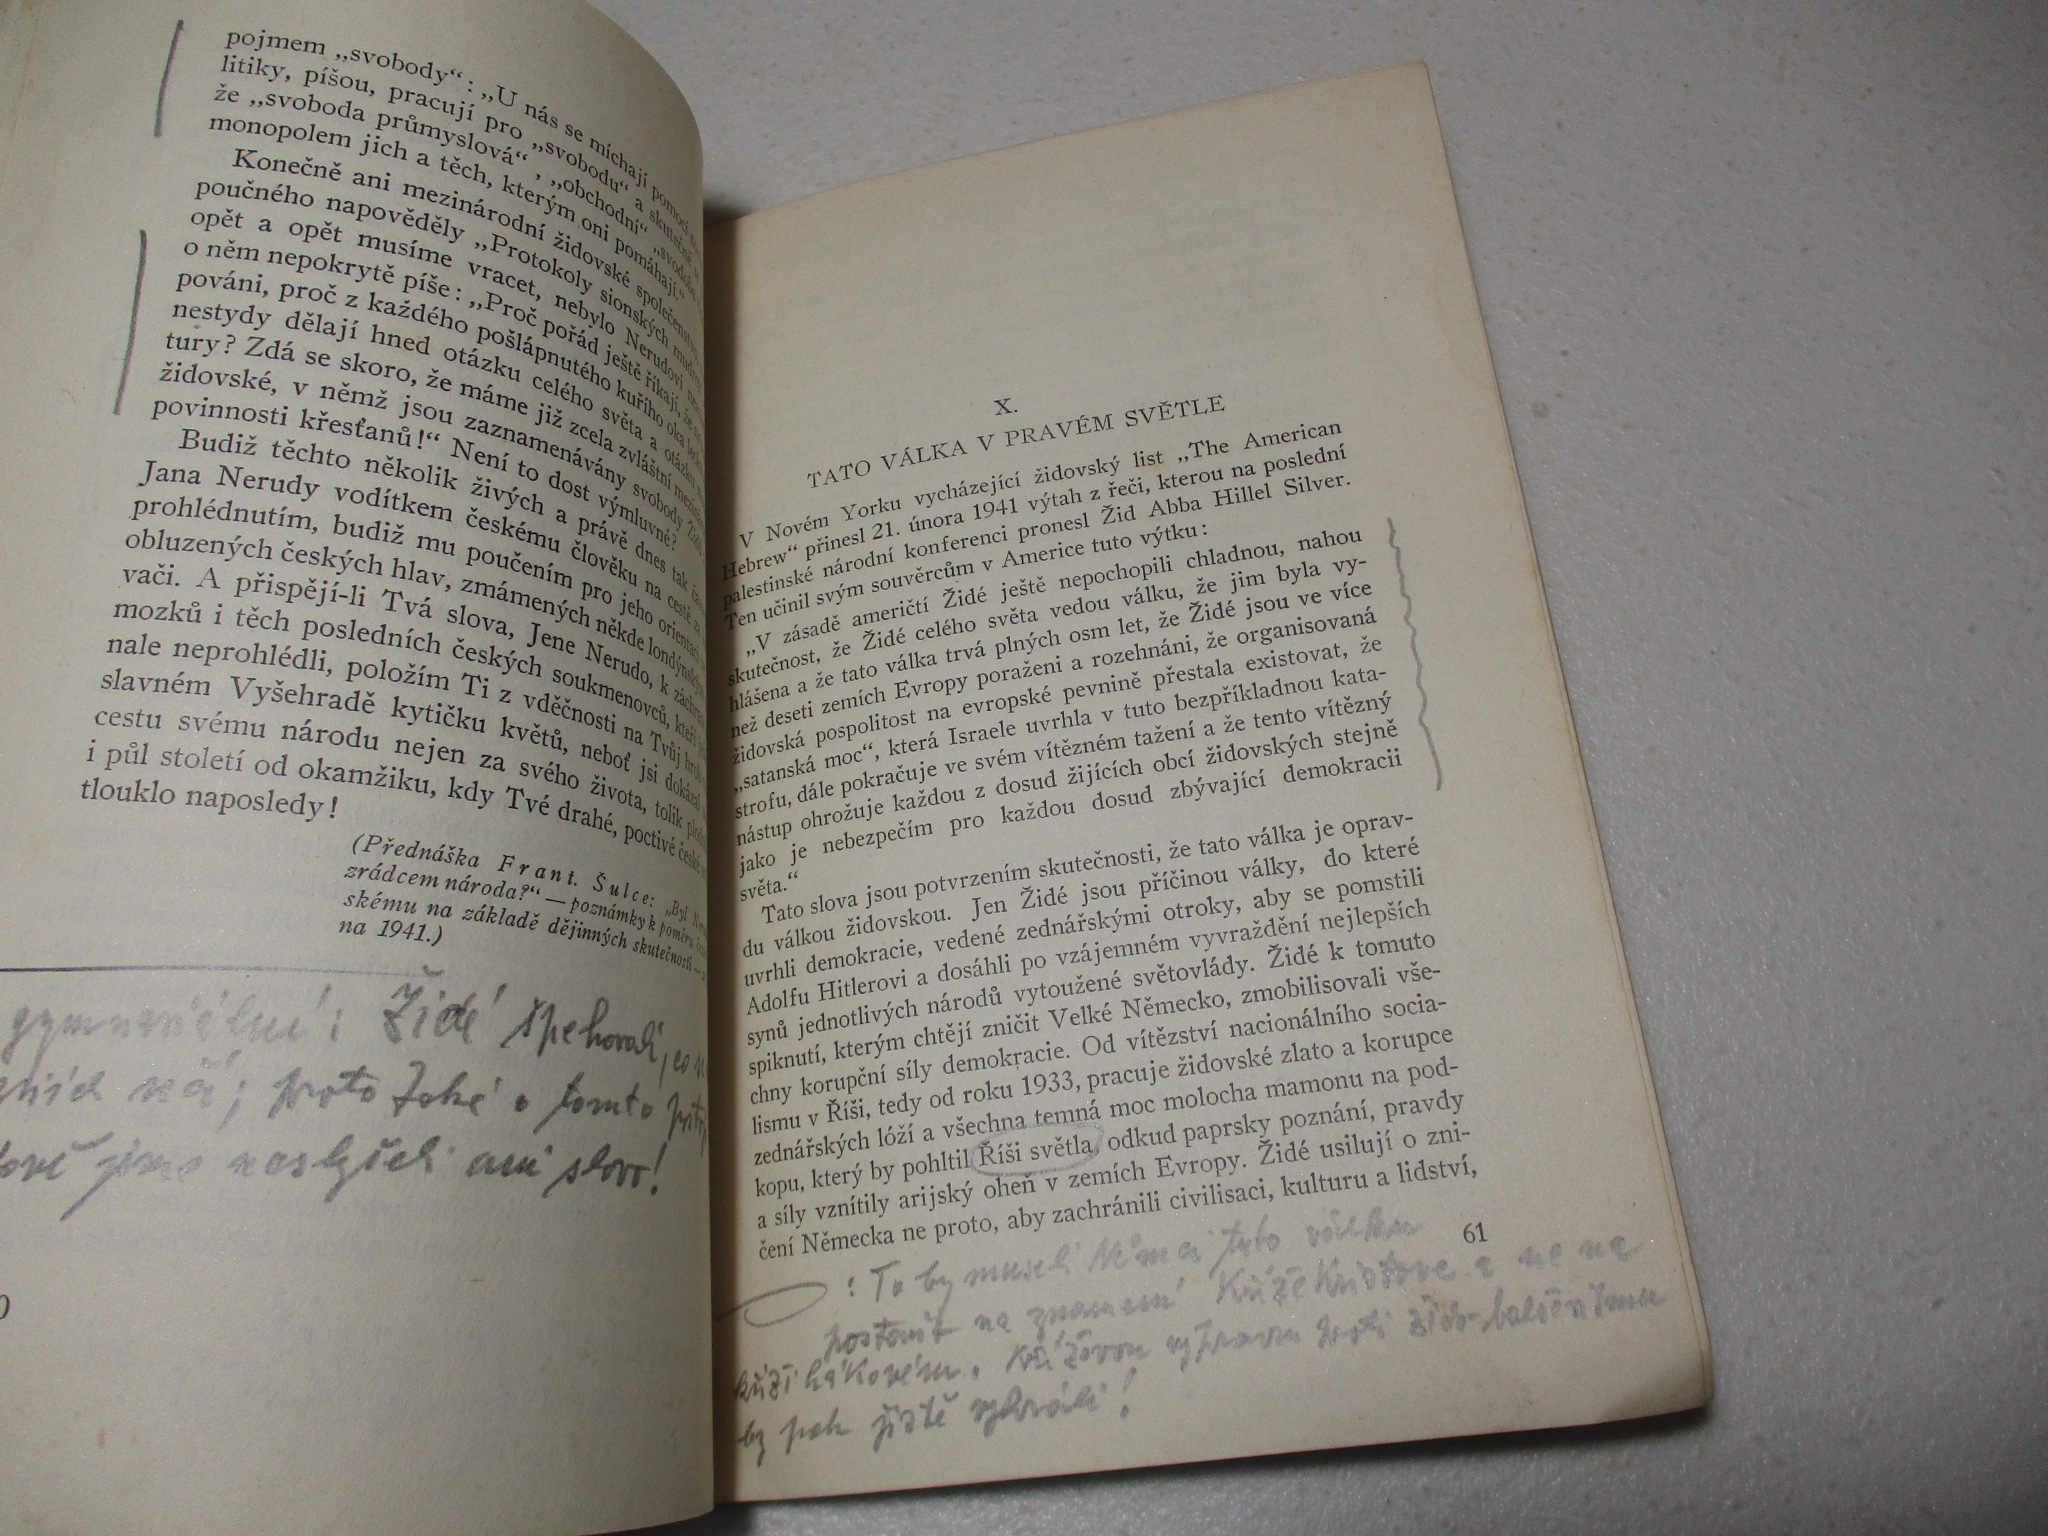 pojmem „svobody“: „U nás se míchají pomocí
litiky, píšou, pracují pro „svobodu“ a skutečně
že „svoboda průmyslová“, „obchodní“
monopolem jich a těch, kterým oni pomáhají.“
Konečně ani mezinárodní židovské
poučného napověděly „Protokoly sionských
opět a opět musíme vracet, nebylo Nerudovi
o něm nepokrytě píše: „Proč pořád ještě říkají, že
pováni, proč z každého pošlápnutého kuřího oka
nestydy dělají hned otázku celého světa a otázku
tury? Zdá se skoro, že máme již zcela zvláštní
židovské, v němž jsou zaznamenávány svobody
povinnosti křesťanů!“ Není to dost výmluvné?
Budiž těchto několik živých a právě dnes tak
Jana Nerudy vodítkem českému člověku na cestě za
prohlédnutím, budiž mu poučením pro jeho
obluzených českých hlav, zmámených někde
vači. A přispějí-li Tvá slova, Jene Nerudo, k
mozků i těch posledních českých soukmenovců, kteří
nale neprohlédli, položím Ti z vděčnosti na Tvůj hrob
slavném Vyšehradě kytičku květů, neboť jsi dokázal
cestu svému národu nejen za svého života, tolik
i půl století od okamžiku, kdy Tvé drahé, poctivé české
tlouklo naposledy!
(Přednáška Frant. Šulce: „Byl
zrádcem národa?“ — poznámky k poměru
skému na základě dějinných skutečností —
na 1941.)
Židé špehovali, co
proto také o tomto
jsme neslyšeli ani slovo!
X.
TATO VÁLKA V PRAVÉM SVĚTLE
V Novém Yorku vycházející židovský list „The American
Hebrew“ přinesl 21. února 1941 výtah z řeči, kterou na poslední
palestinské národní konferenci pronesl Žid Abba Hillel Silver.
Ten učinil svým souvěrcům v Americe tuto výtku:
„V zásadě američtí Židé ještě nepochopili chladnou, nahou
skutečnost, že Židé celého světa vedou válku, že jim byla vy-
hlášena a že tato válka trvá plných osm let, že Židé jsou ve více
než deseti zemích Evropy poraženi a rozehnáni, že organisovaná
židovská pospolitost na evropské pevnině přestala existovat, že
„satanská moc“, která Israele uvrhla v tuto bezpříkladnou kata-
strofu, dále pokračuje ve svém vítězném tažení a že tento vítězný
nástup ohrožuje každou z dosud žijících obcí židovských stejně
jako je nebezpečím pro každou dosud zbývající demokracii
světa.“
Tato slova jsou potvrzením skutečnosti, že tato válka je oprav-
du válkou židovskou. Jen Židé jsou příčinou války, do které
uvrhli demokracie, vedené zednářskými otroky, aby se pomstili
Adolfu Hitlerovi a dosáhli po vzájemném vyvraždění nejlepších
synů jednotlivých národů vytoužené světovlády. Židé k tomuto
spiknutí, kterým chtějí zničit Velké Německo, zmobilisovali vše-
chny korupční síly demokracie. Od vítězství nacionálního socia-
lismu v Říši, tedy od roku 1933, pracuje židovské zlato a korupce
zednářských lóží a všechna temná moc molocha mamonu na pod-
kopu, který by pohltil Říši světla, odkud paprsky poznání, pravdy
a síly vznítily arijský oheň v zemích Evropy. Židé usilují o zni-
čení Německa ne proto, aby zachránili civilisaci, kulturu a lidství,
61
: To by museli Němci tuto válku
postavit na znamení Kříže Kristova a ne na
kříži hákovém. Křížovou výpravu proti žido-bolševismu
by pak jistě vyhráli!